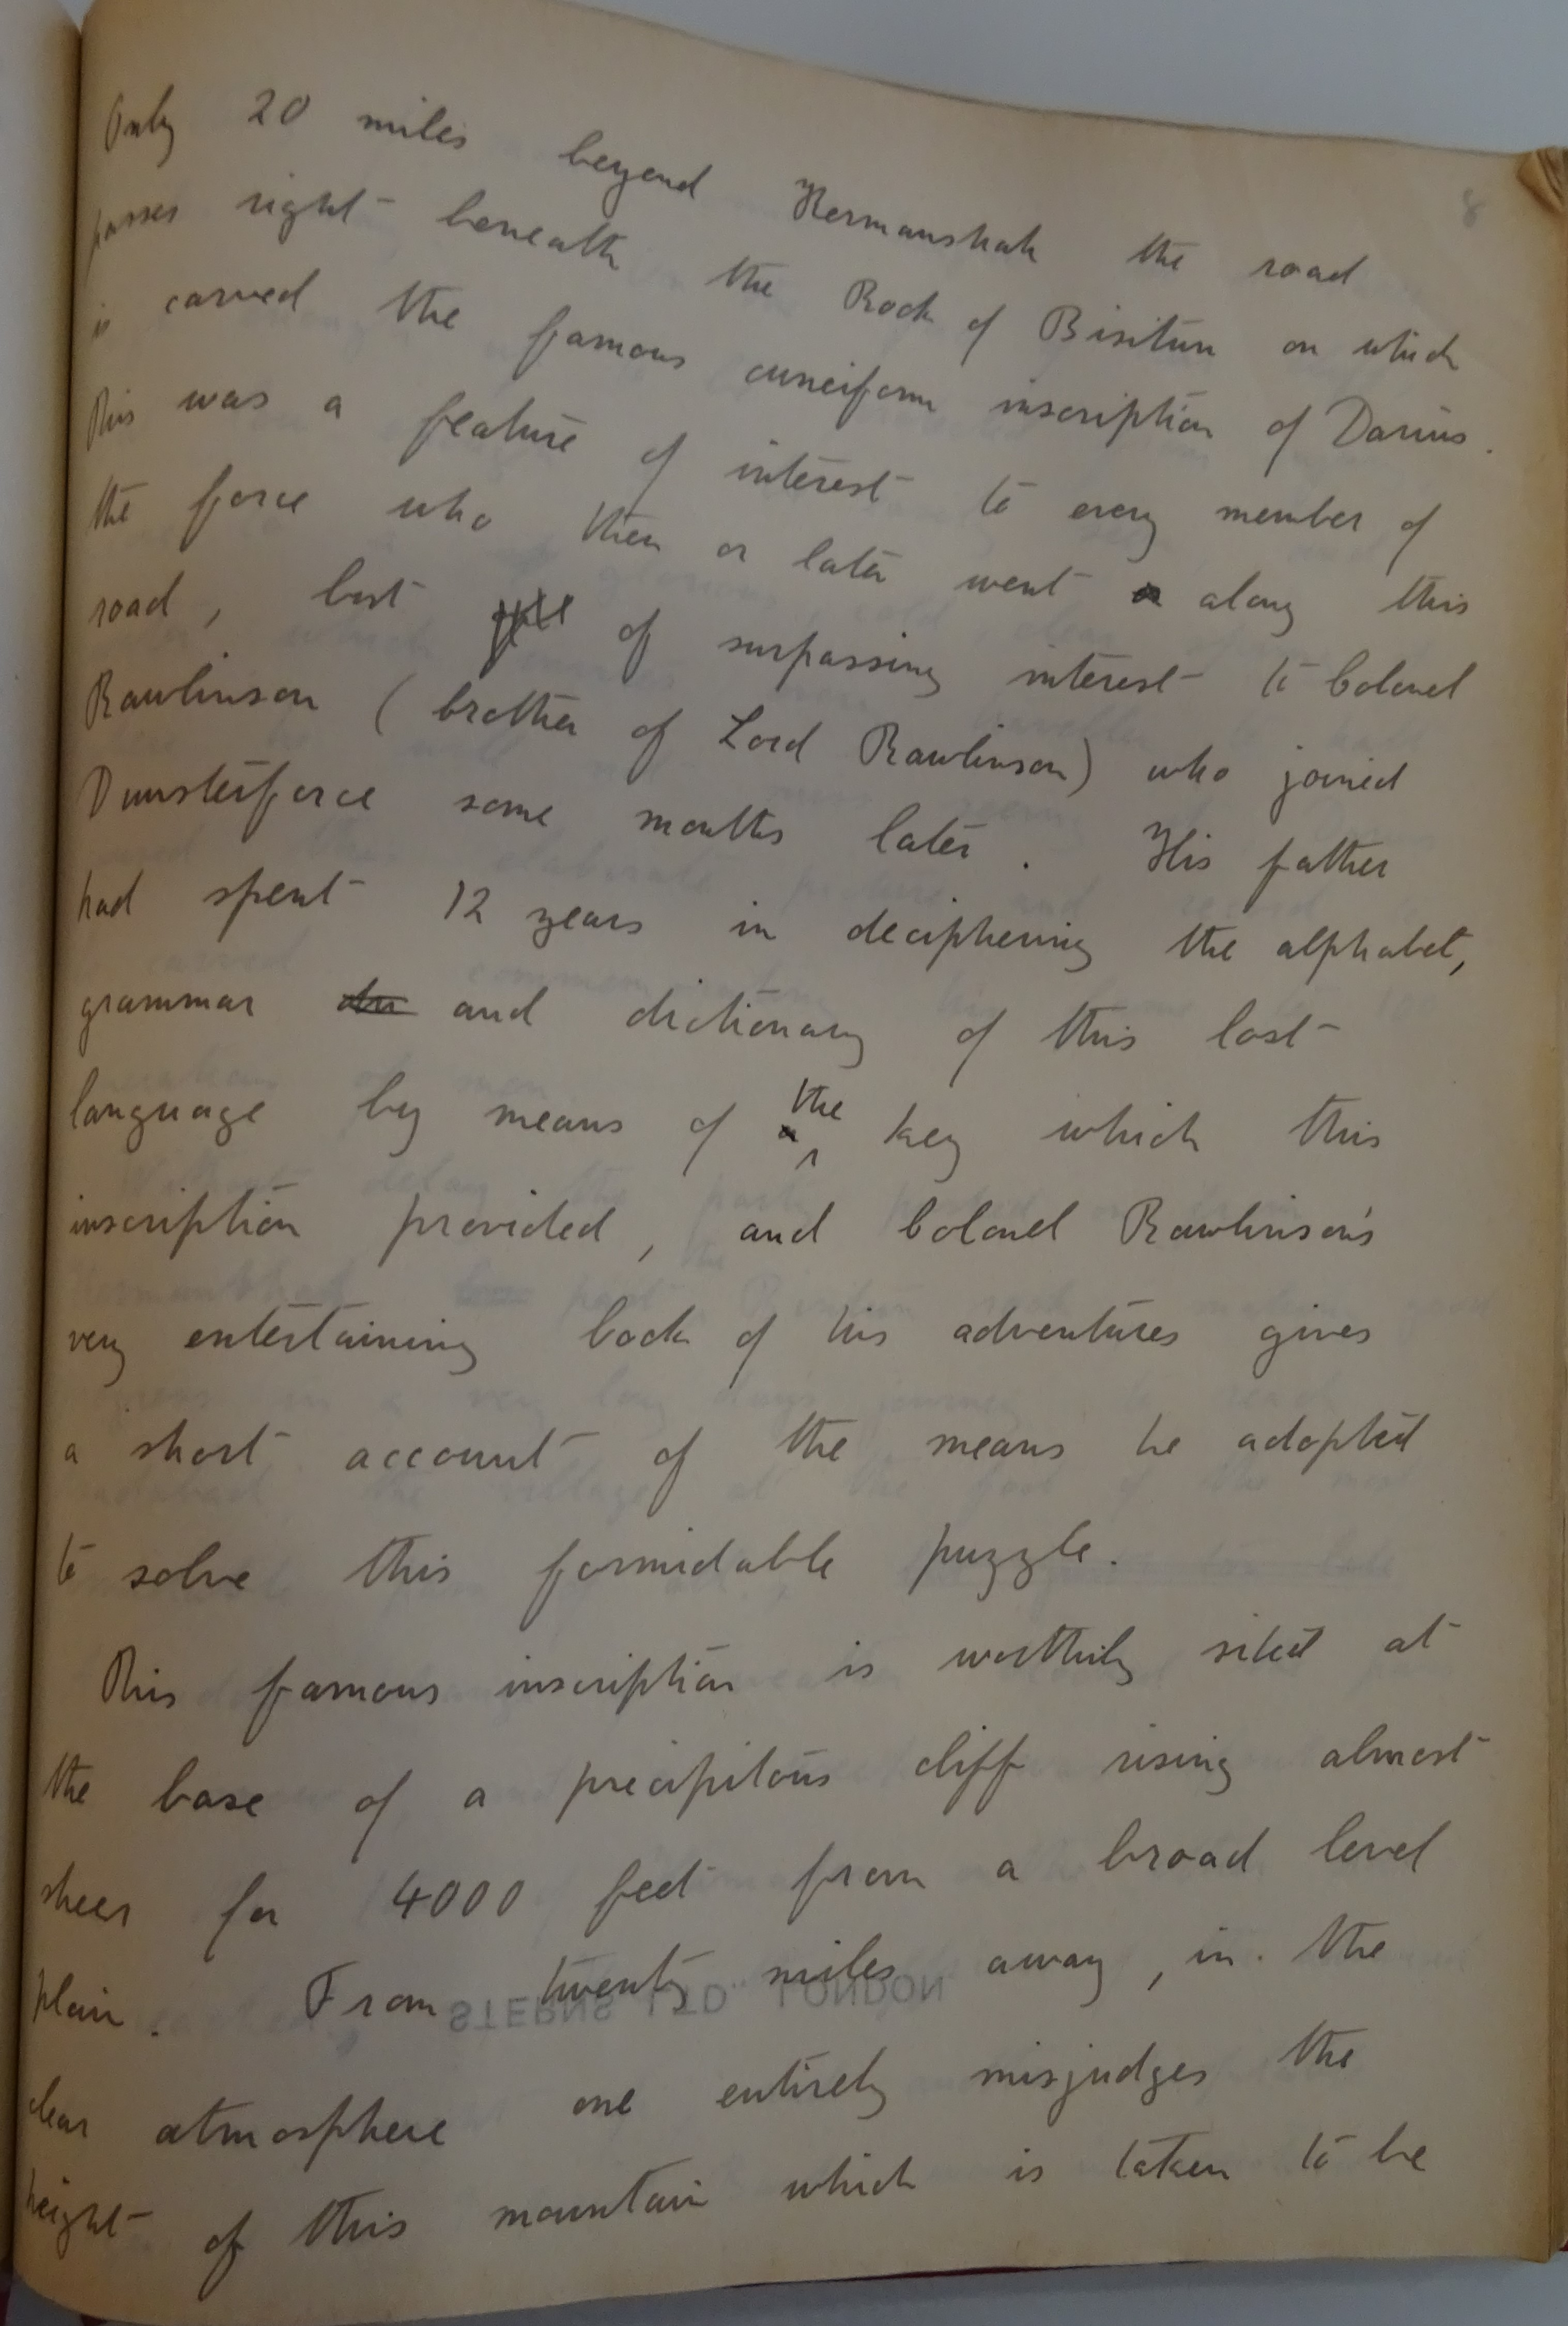 8
Only 20 miles beyond Kermanshah the road
passes right beneath the Rock of Bisitun on which
is carved the famous cuneiform inscription of Darius.
This was a feature of interest to every member of
the force who then or later went along this
road, but of surpassing interest to Colonel
Rawlinson (brother of Lord Rawlinson) who joined
Dunsterforce some months later. His father
had spent 12 years in deciphering the alphabet,
grammar and dictionary of this lost
language by means of the key which this
inscription provided, and Colonel Rawlinson's
very entertaining book of his adventures gives
a short account of the means he adopted
to solve this formidable puzzle.
This famous inscription is worthily sited at
the base of a precipitous cliff rising almost
sheer for 4000 feet from a broad level
plain. From twenty miles away, in the
STERNS LTD LONDON
clear atmosphere one entirely misjudges the
height of this mountain which is taken to be